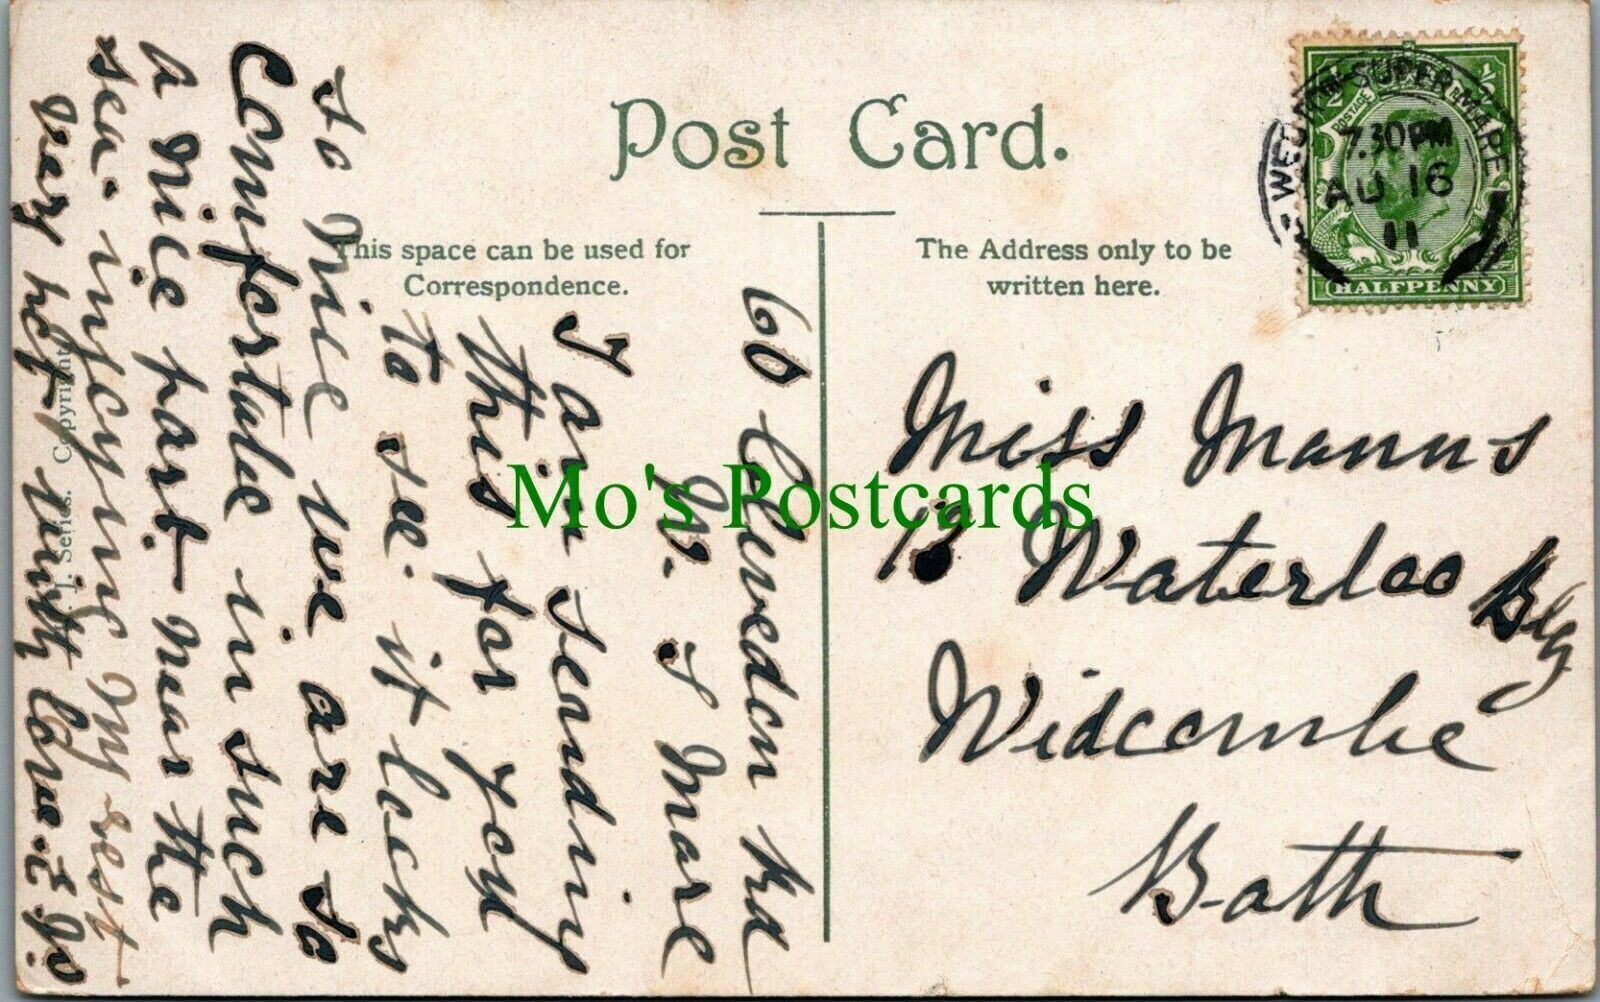 Post Card.
This space can be used for
Correspondence.
The Address only to be
written here.
WESTON-SUPER-MARE
7.30PM
AU 16
11
POSTAGE
HALFPENNY
60 Clevedon Rd
W. S Mare
I am sending
this for you
to see. it looks
so nice we are so
Comfortable in such
a nice part near the
sea. injoying my rest
very hot with love
J. Series. Copyright.
Miss Manns
13 Waterloo Blg
Widcombe
Bath
Mo's Postcards